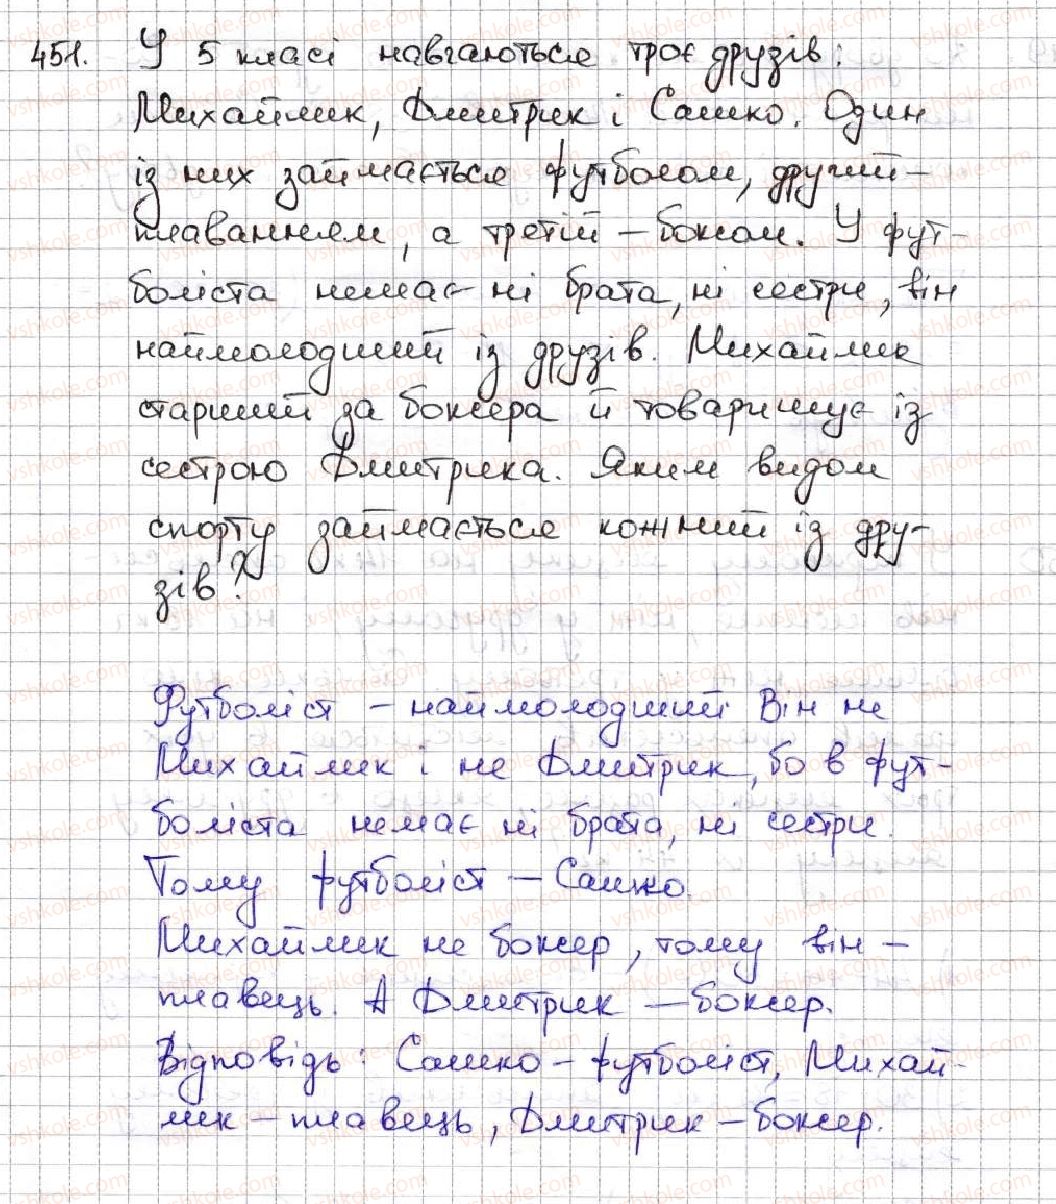 451. У 5 класі навчаються троє друзів:
Михайлик, Дмитрик і Сашко. Один
із них займається футболом, другий –
плаванням, а третій – боксом. У фут-
боліста немає ні брата, ні сестри, він
наймолодший із друзів. Михайлик
старший за боксера й товаришує із
сестрою Дмитрика. Яким видом
спорту займається кожний із дру-
зів?
Футболіст – наймолодший. Він не
Михайлик і не Дмитрик, бо в фут-
боліста немає ні брата, ні сестри.
Тому футболіст – Сашко.
Михайлик не боксер, тому він –
плавець. А Дмитрик – боксер.
Відповідь: Сашко – футболіст, Михай-
лик – плавець, Дмитрик – боксер.